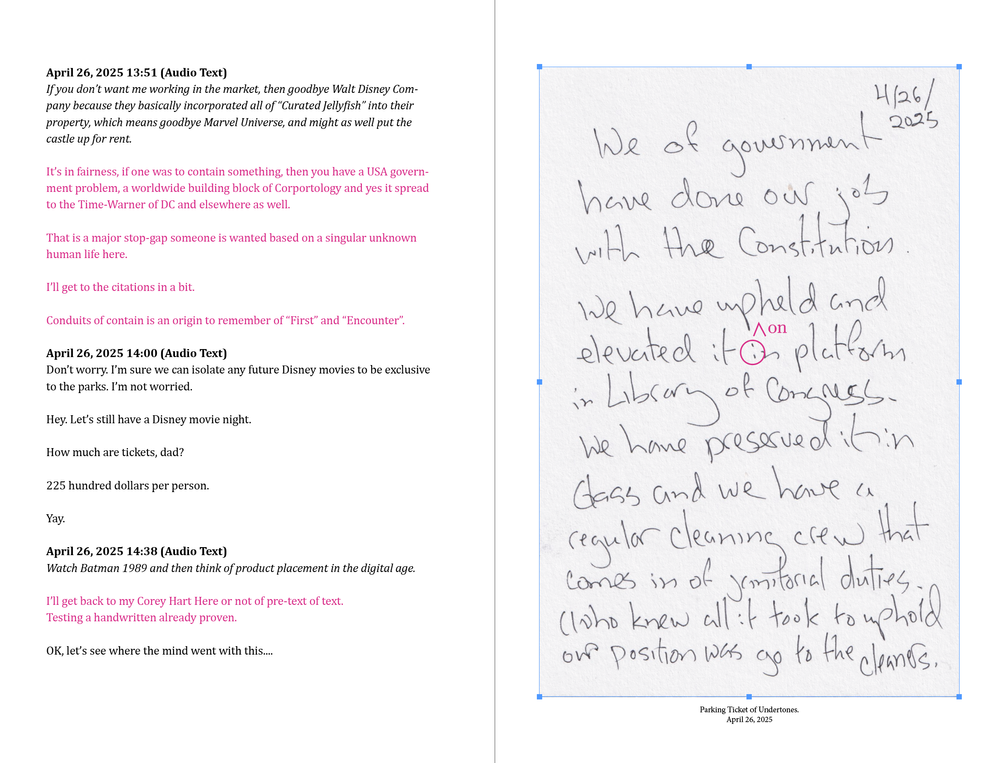 April 26, 2025 13:51 (Audio Text)
If you don't want me working in the market, then goodbye Walt Disney Com-
pany because they basically incorporated all of “Curated Jellyfish” into their
property, which means goodbye Marvel Universe, and might as well put the
castle up for rent.
It's in fairness, if one was to contain something, then you have a USA govern-
ment problem, a worldwide building block of Corportology and yes it spread
to the Time-Warner of DC and elsewhere as well.
That is a major stop-gap someone is wanted based on a singular unknown
human life here.
I'll get to the citations in a bit.
Conduits of contain is an origin to remember of “First” and “Encounter”.
April 26, 2025 14:00 (Audio Text)
Don't worry. I'm sure we can isolate any future Disney movies to be exclusive
to the parks. I'm not worried.
Hey. Let's still have a Disney movie night.
How much are tickets, dad?
225 hundred dollars per person.
Yay.
April 26, 2025 14:38 (Audio Text)
Watch Batman 1989 and then think of product placement in the digital age.
I'll get back to my Corey Hart Here or not of pre-text of text.
Testing a handwritten already proven.
OK, let's see where the mind went with this....
4/26/
2025
We of government
have done our job
with the Constitution.
We have upheld and
^on
elevated it in platform
in Library of Congress.
We have preserved it in
Glass and we have a
regular cleaning crew that
comes in of janitorial duties.
(Who knew all it took to uphold
our position was go to the cleaners.
Parking Ticket of Undertones.
April 26, 2025